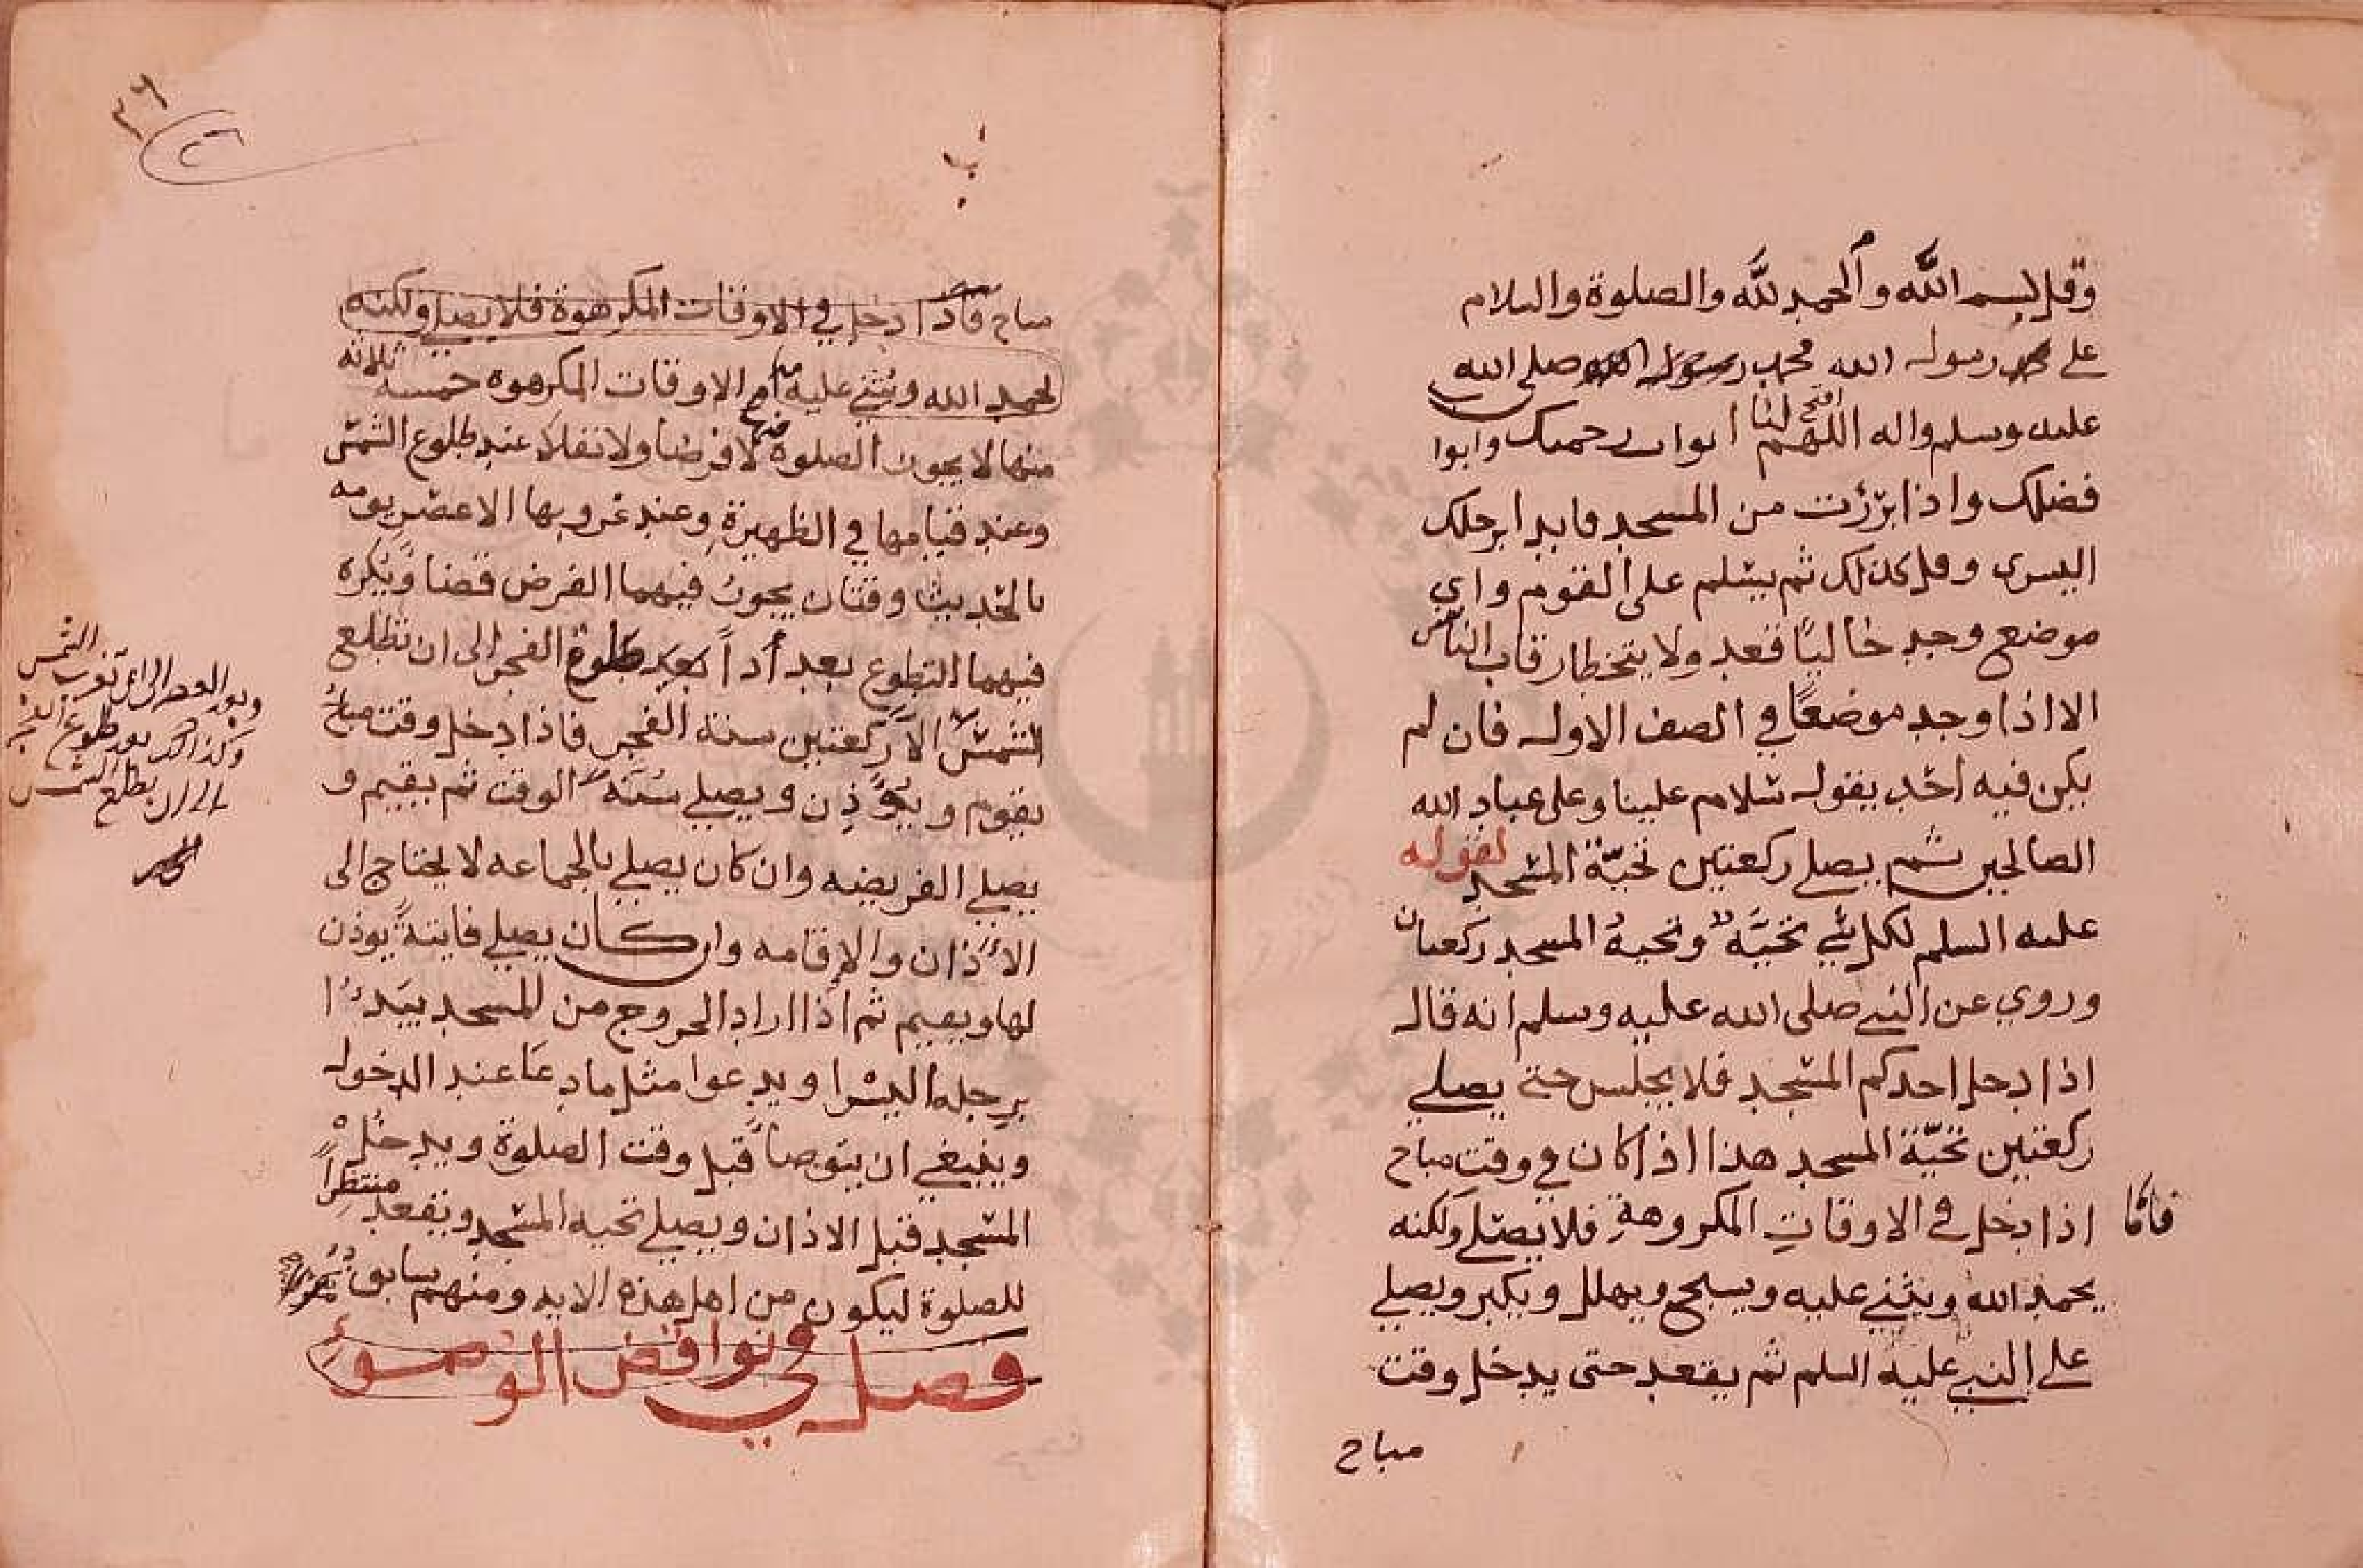 وقل بسم الله والحمد لله والصلوة والسلام
على رسول الله محمد صلى الله
عليه وسلم واله اللهم افتح لنا ابواب رحمتك وابوا
فضلك واذا برزت من المسجد فابدا برجلك
اليسرى وقل كذلك ثم يسلم على القوم واي
موضع وجد خاليًا قعد ولا يتخطا رقاب الناس
الا اذا وجد موضعًا في الصف الاول فان لم
يكن فيه احد يقول سلام علينا وعلى عباد الله
الصالحين ثم يصلي ركعتين تحيّة المسجد لقوله
عليه السلم لكل شي تحيَّة وتحية المسجد ركعتان
وروي عن النبي صلى الله عليه وسلم انه قال
اذا دخل احدكم المسجد فلا يجلس حتى يصلي
ركعتين تحيّة المسجد هذا اذا كان في وقت مباح
فامّا اذا دخل في الاوقاتِ المكروهةِ فلا يصلي ولكنه
يحمد الله ويثني عليه ويسبح ويهلل ويكبر ويصلي
على النبي عليه السلم ثم يقعد حتى يدخل وقت
مباح
٢٦
٢٦
مباح فاذا دخل في الاوقات المكرهوة فلا يصلي ولكنه
يحمد الله ويثني عليه ثم الاوقات المكرهوه خمسة ثلاثة
منها لا يجوز الصلوة فيها لا فرضا ولا نفلا عند طلوع الشمس
وعند قيامها في الظهيرة وعند غروبها الا عصر يومه
بالحديث وقتان يجوز فيهما الفرض قضا ويُكره
فيهما التطوع بعد أداً بعد طلوع الفجر الى ان تطلع
الشمس الا ركعتين سنة الفجر فاذا دخل وقت مباحٌ
يقوم ويؤذن ويصلي سُنّة الوقت ثم يقيم و
يصلي الفريضه وان كان يصلي بالجماعه لا يحتاج الى
الأذان والاقامه وان كان يصلي فايتةً يوذن
لها ويقيم ثم اذا اراد الخروج من المسجد يبدُا
برجله اليسرا ويدعوا مثل ما دعا عند الدخول
وينبغي ان يتوضأ قبل وقت الصلوة ويدخُل
المسجد قبل الاذان ويصلي تحيه المسجد ويقعد منتظراً
للصلوة ليكون من اهل هذه الايه ومنهم سابق
فصل في نواقض الوضوء
وبعد العصر الى ان تغرب الشمس
وكذالك بعد طلوع الفجر
الى ان يطلع الشمس